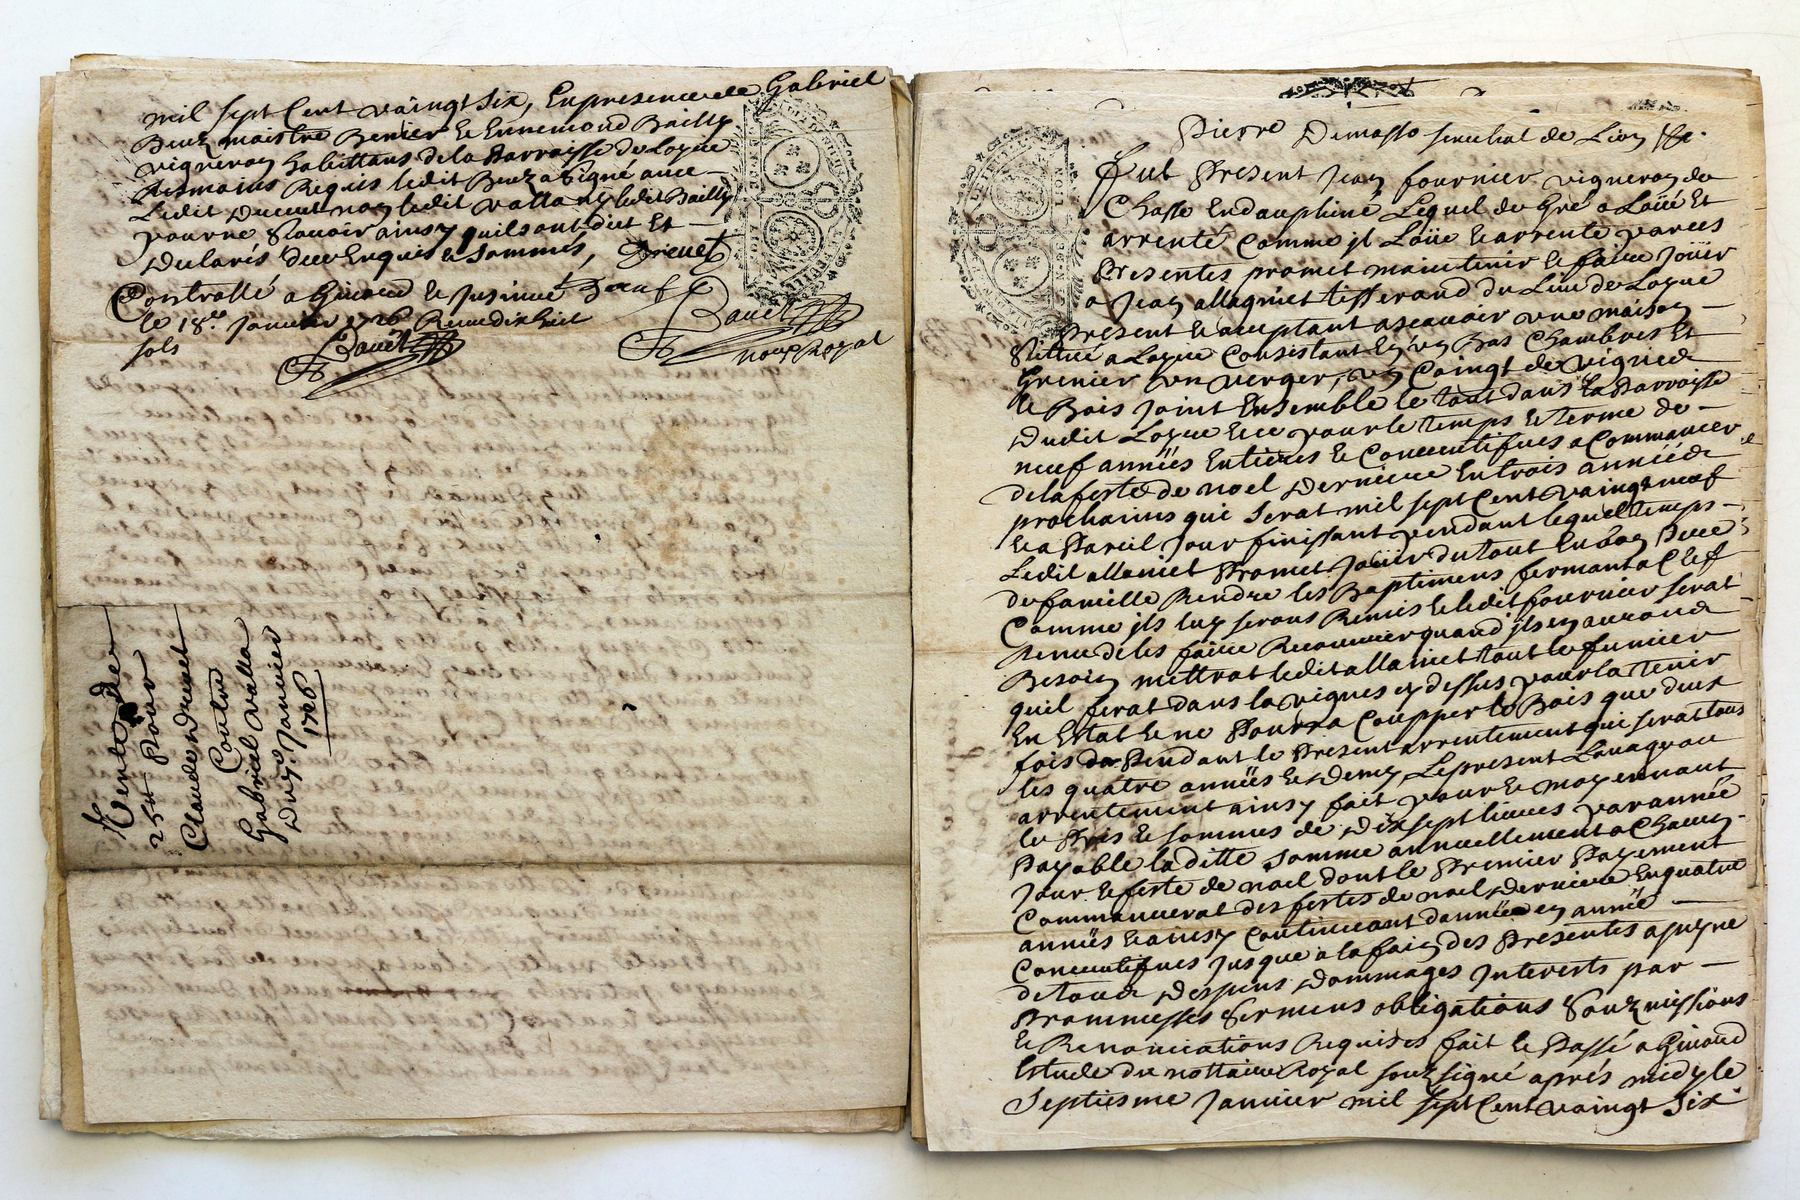 mil sept Cent vaingt six, En presence de Gabriel
Buez maistre Benier & Ennemond Bailly
vigneron habittans de la Parroisse de Loyue
tesmoins Requis ledit Buez a signé avec
Ledit Drevet non ledit vallaz ny ledit Bailly
pour ne scavoir ainsy quils ont dict Et
Declarés deux Enquis & sommés, Drevet
Controllé a Giroud le
le 18me Janvier 1726 Receu dix huit
sols
Bauet
Bauet
nore Royal
Vente de
25 pour
Claude Drevet
Contre
Gabriel valla
Du 7e Janvier
1726
Pierre Demasso senechal de Lion
Fut Present Jean fournier vigneron de
Chasse En dauphiné Lequel de Gré a Loüé Et
arrenté Comme jl Loüe & arrente par ces
Presentes promet maintenir & faire Joüir
a Jean allagniet tisserand du Lieu de Loyue
Present & acceptant ascavoir une maison
Scittué a Loyue Consistant En un Bas Chambres Et
Grenier un verger, un Coingt de vigne &
& Bois Joint Ensemble le tout dans la Parroisse
Dudit Loyue & ce pour le temps & terme de
neuf annëes Entieres & Consecutifues a Commancer
de la feste de noel Derniere En trois année
prochaines qui serat mil sept Cent vaingt neuf
& a Pareil Jour finissant pendant lequel temps
Ledit allaniet Promet Joüir du tout En bon Pere
de famille Rendre les Baptimens fermant a Clef
Comme jls luy serons Remis & ledit fournier serat
tenu de les faire Recouvrir quand jls en auront
Besoin mettrat ledit allaniet tout le fumier
quil ferat dans la vignes cy dessus pour la tenir
En Estat & ne Pourra Coupper le Bois que deux
fois Pendant le Present arrentement qui serat tous
les quatre annëes & Demy Le present
arrentement ainsy fait pour & moyennant
le Pris & sommes de Dix sept livres par année
Payable laditte somme annuellement a Chacun
Jour & feste de noel dont le Premier Payement
Commancerat des festes de noel Derniere En quatre
annëes & ainsy Continuant d'année en année
Consecutifues jusque a la fain des Presentes a peyne
de tous Despens Dommages Jnterests par
Prommesses sermens obligations Soubzmissions
& Renonciations Requises fait & Passé a Giroud
Estude du nottaire Royal soubzsigné aprés midy le
Septiesme Janvier mil sept Cent vaingt Six